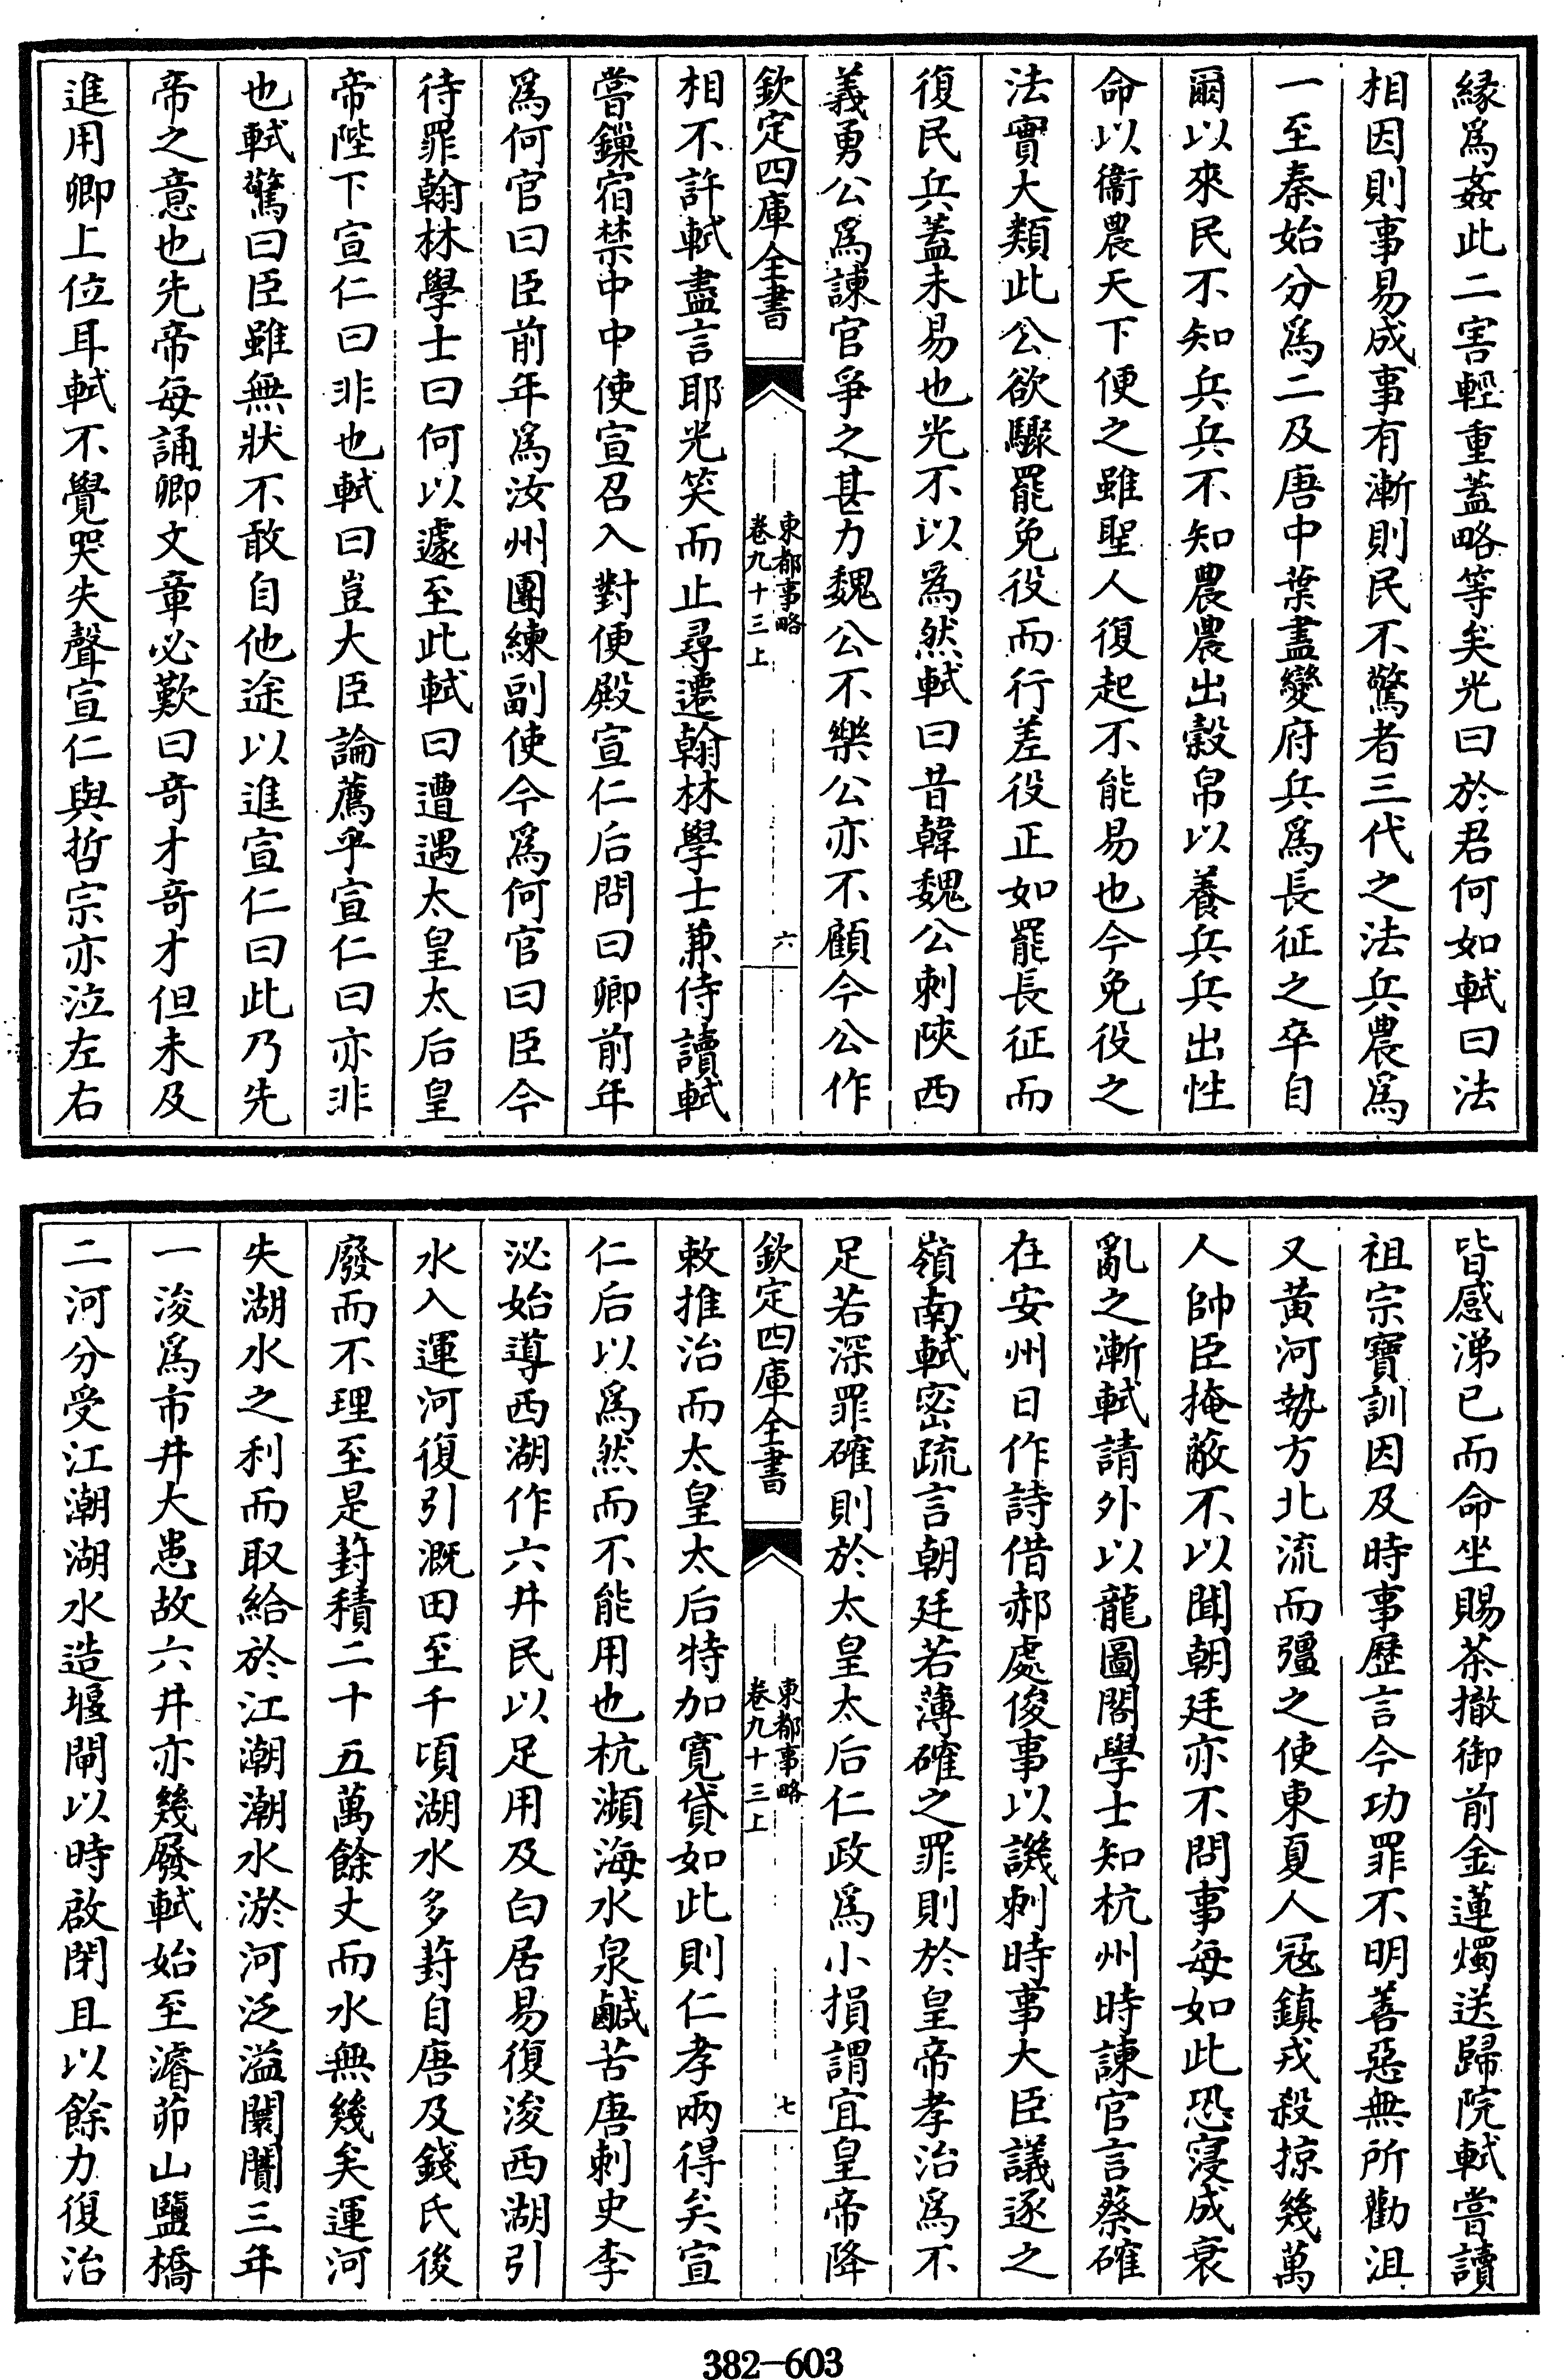 縁爲姦此二害輕重蓋略等矣光曰於君何如軾曰法
相因則事易成事有漸則民不驚者三代之法兵農爲
一至秦始分爲二及唐中葉盡變府兵爲長征之卒自
爾以來民不知兵兵不知農農出穀帛以養兵兵出性
命以衞農天下便之雖聖人復起不能易也今免役之
法實大類此公欲驟罷免役而行差役正如罷長征而
復民兵蓋未易也光不以爲然軾曰昔韓魏公刺陜西
義勇公爲諫官爭之甚力魏公不樂公亦不顧今公作
欽定四庫全書
東都事略
卷九十三上
六
相不許軾盡言耶光笑而止尋遷翰林學士兼侍讀軾
嘗鏁宿禁中中使宣召入對便殿宣仁后問曰卿前年
爲何官曰臣前年爲汝州團練副使今爲何官曰臣今
待罪翰林學士曰何以遽至此軾曰遭遇太皇太后皇
帝陛下宣仁曰非也軾曰豈大臣論薦乎宣仁曰亦非
也軾驚曰臣雖無狀不敢自他途以進宣仁曰此乃先
帝之意也先帝每誦卿文章必歎曰奇才奇才但未及
進用卿上位耳軾不覺哭失聲宣仁與哲宗亦泣左右
皆感涕已而命坐賜茶撤御前金蓮燭送歸院軾嘗讀
祖宗寶訓因及時事歷言今功罪不明善惡無所勸沮
又黄河勢方北流而彊之使東夏人冦鎮戎殺掠幾萬
人帥臣掩蔽不以聞朝廷亦不問事每如此恐寖成衰
亂之漸軾請外以龍圖閣學士知杭州時諫官言蔡確
在安州日作詩借郝處俊事以譏刺時事大臣議逐之
嶺南軾密疏言朝廷若薄確之罪則於皇帝孝治爲不
足若深罪確則於太皇太后仁政爲小損謂宜皇帝降
欽定四庫全書
東都事略
卷九十三上
七
敕推治而太皇太后特加寛貸如此則仁孝兩得矣宣
仁后以爲然而不能用也杭瀕海水泉鹹苦唐刺史李
泌始導西湖作六井民以足用及白居易復浚西湖引
水入運河復引溉田至千頃湖水多葑自唐及錢氏後
廢而不理至是葑積二十五萬餘丈而水無幾矣運河
失湖水之利而取給於江潮潮水淤河泛溢闤闠三年
一浚爲市井大患故六井亦幾廢軾始至濬茆山鹽橋
二河分受江潮湖水造堰閘以時啟閉且以餘力復治
382-603